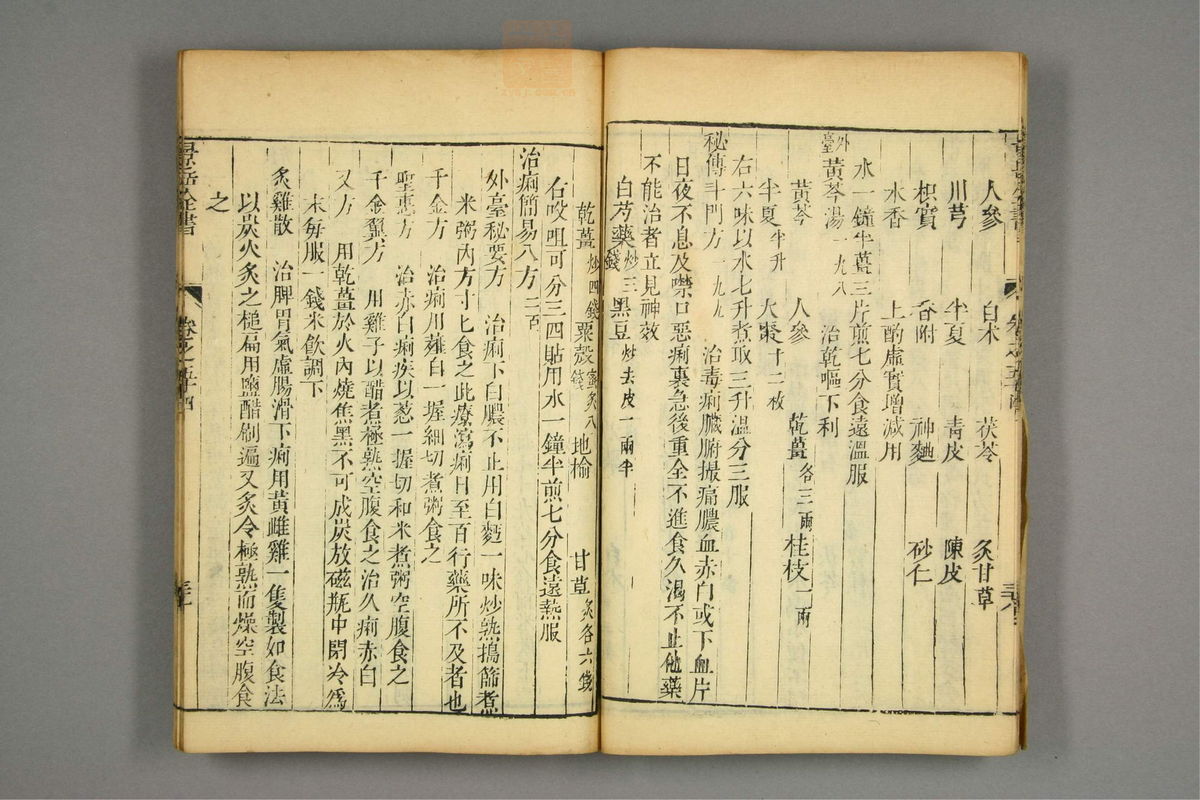 人參　白朮　茯苓　炙甘草
川芎　半夏　青皮　陳皮
枳實　香附　神麯　砂仁
木香　上酌虛實增減用
水一鐘半薑三片煎七分食遠溫服
外臺黃芩湯一九八　治乾嘔下利
黃芩　人參　乾薑各三兩桂枝一兩
半夏半升　大棗十二枚
右六味以水七升煮取三升溫分三服
秘傳斗門方一九九　治毒痢臟腑撮痛膿血赤白或下血片
日夜不息及噤口惡痢裏急後重全不進食久渴不止他藥
不能治者立見神效
白芍藥炒三錢黑豆炒去皮一兩半
乾薑炒四錢粟殼蜜炙八錢地榆　甘草炙各六錢
右㕮咀可分三四貼用水一鐘半煎七分食遠熱服
治痢簡易八方二百
外臺秘要方　治痢下白膿不止用白麪一味炒熟搗篩煮
米粥內方寸匕食之此療瀉痢日至百行藥所不及者也
千金方　治痢用薤白一握細切煮粥食之
聖惠方　治赤白痢疾以葱一握切和米煮粥空腹食之
千金翼方　用雞子以醋煮極熟空腹食之治久痢赤白
又方　用乾薑於火內燒焦黑不可成炭放磁瓶中閉冷爲
末每服一錢米飲調下
炙雞散　治脾胃氣虛腸滑下痢用黃雌雞一隻製如食法
以炭火炙之槌扁用鹽醋刷遍又炙令極熟而燥空腹食
之
景岳全書
卷之五十四